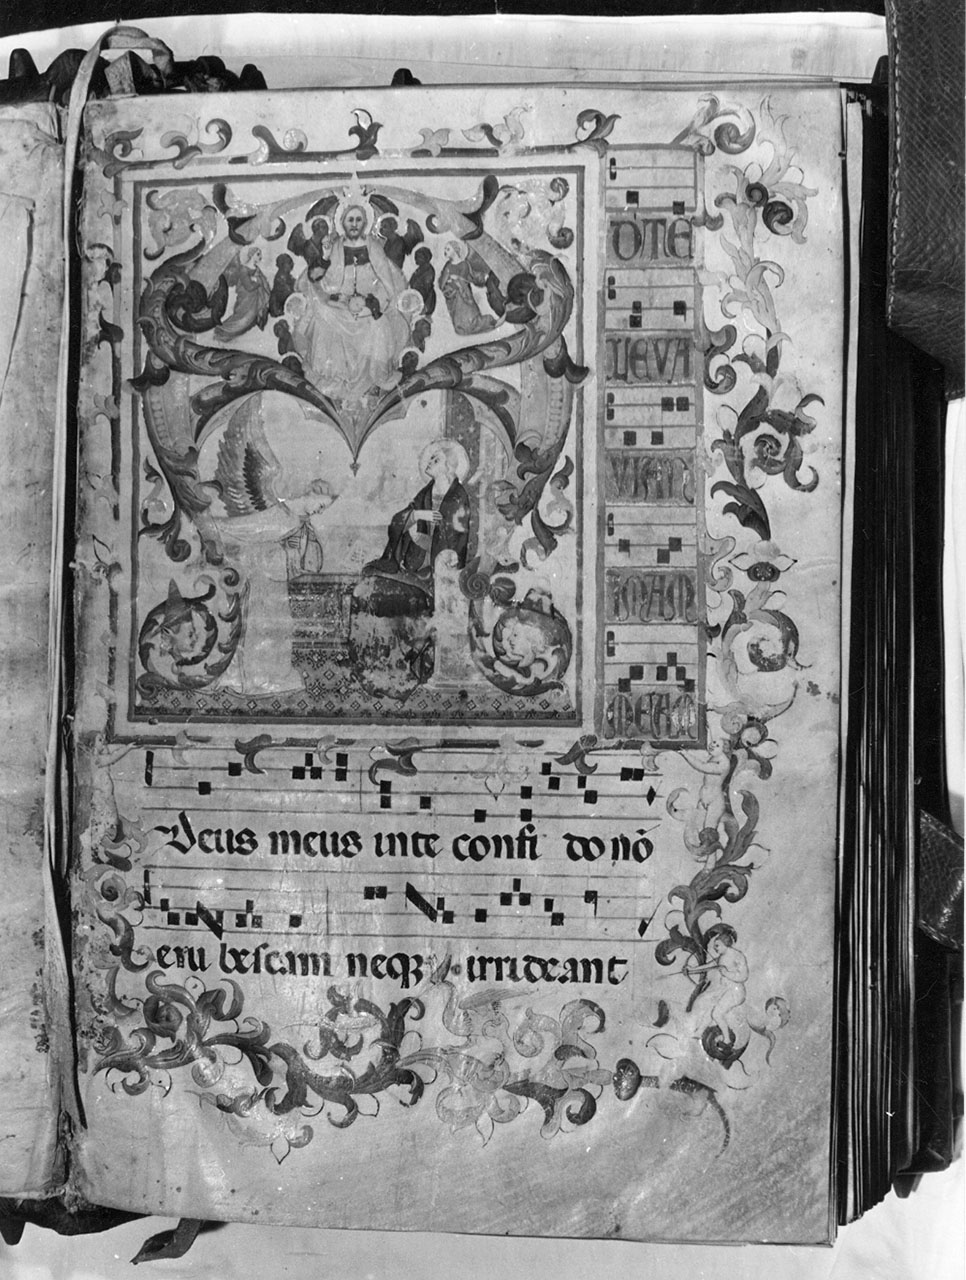 D TE
LEVA
VI AN
IMAM
MEAM
Deus meus inte confi do nō
eru bescam neqꝫ irrideant